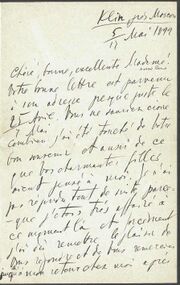 Klin près Moscou
5/17 Mai 1891
Chère, bonne, excellente Madame!
Votre bonne lettre est parvenue
à son adresse presque juste le
25 Avril. Vous ne sauriez croire
combien j'ai été touché de votre
bon souvenir et aussi de ce
que vos charmantes filles
aient pensé à moi. Je n'ai
pas répondu tout de suite parce
que j'étais très affairé à
ce moment là et précisément
j'ai dû remettre le plaisir de
Vous répondre et de Vous remercier
jusqu'à mon retour chez moi après